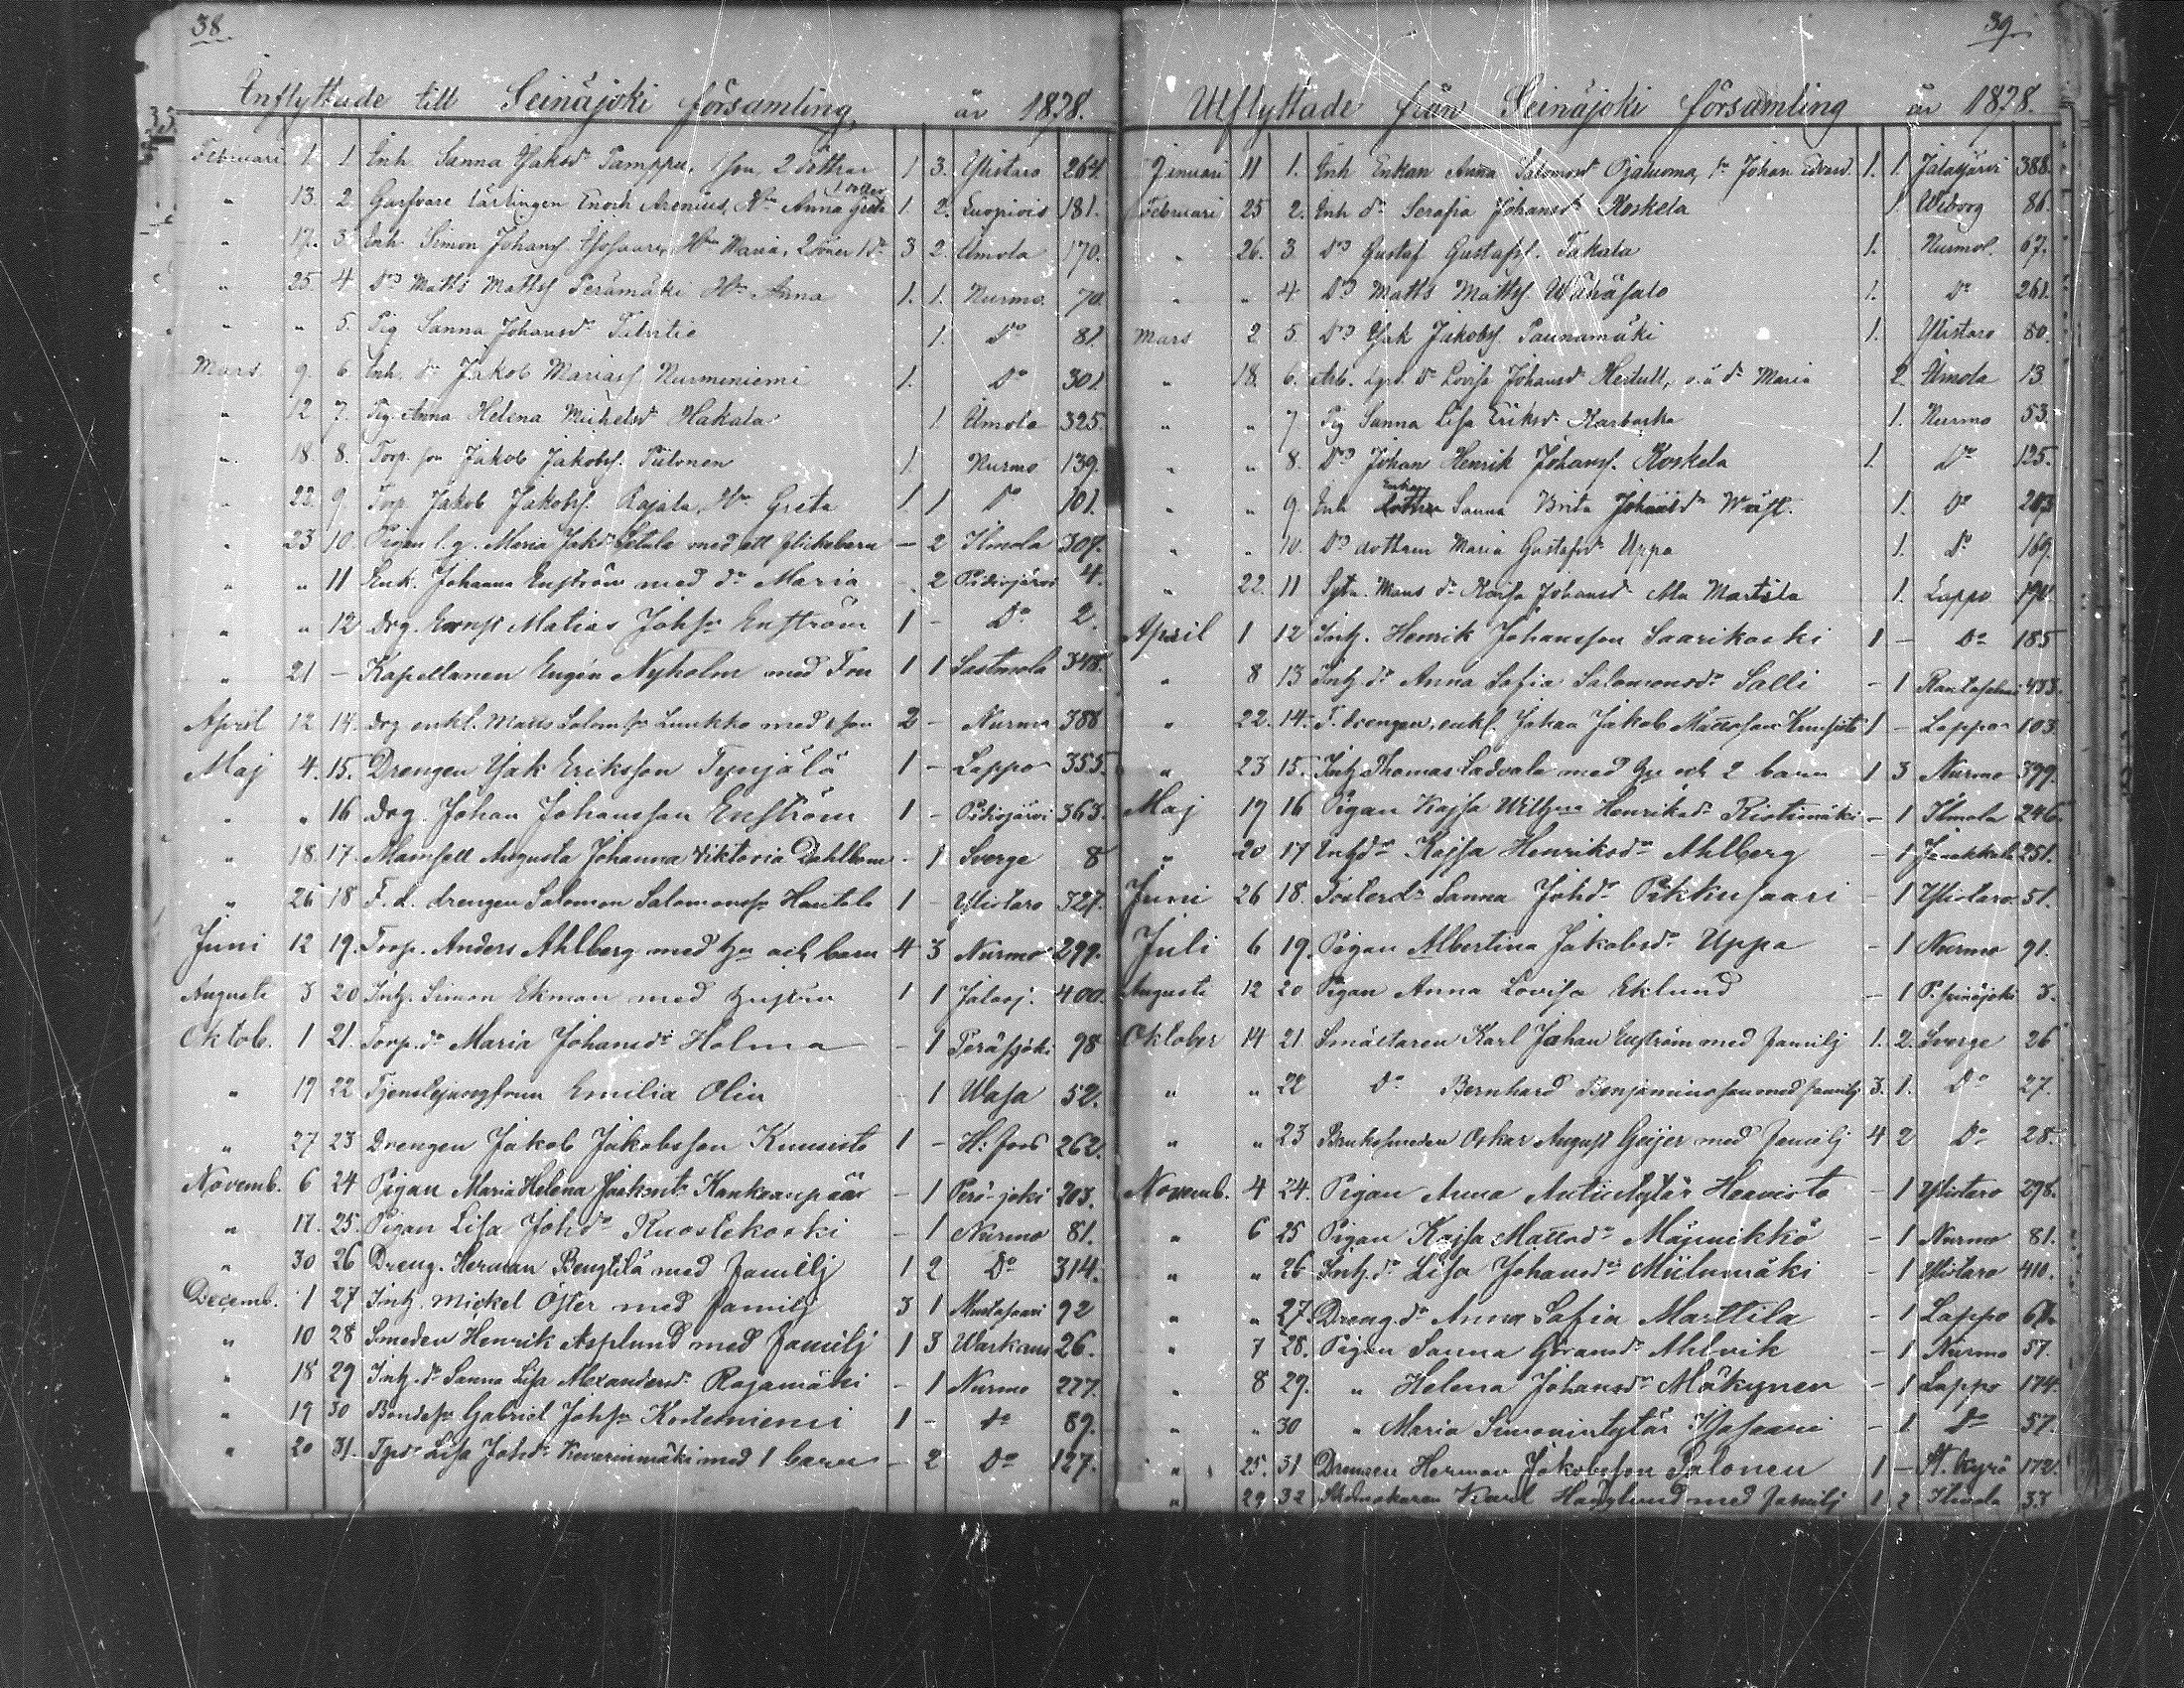 38
Inflyttade till Seinäjoki församling, år 1878.
Februari 1. 1. Inh. Sanna Isaksdr Pamppu, 1 son, 2 döttrar 1 3. Ylistaro 264.
" 13. 2. Garfvare Lärlingen Enoch Arenius, Hu Anna Greta 1 dotter 1. 2. Luopiois 181.
" 17. 3. Inh. Simon Johans. Isosaari, Hu Maria, 2 söner 1 dr 3 2. Ilmola 170.
" 25 4 Do Matts Mattss. Perämäki Hu Anna 1. 1. Nurmo. 70.
" " 5. Pig Sanna Johansdr Talvitie 1. Do 81.
Mars 9. 6 Inh. dr Jakob Mariass. Nurmeniemi 1. Do 301.
" 12 7. Pig. Anna Helena Michelsdr Hakala 1. Ilmola 325.
" 18. 8. Torp. son Jakob Jakobss. Pulonen 1. Nurmo 139.
" 22. 9. Torp. Jakob Jakobss. Rajala, Hu Greta 1 1 Do 101.
" 23 10. Pigan l. q. Maria Isaksdr med ett flickebarn – 2 Ilmola 307.
" " 11 Enk. Johanna Enström med dr Maria 2 Pihlajavesi 4.
" " 12 Drg. Ernst Matias Johsson Enström 1 – Do 2.
" 21 – Kapellanen Eugén Nyholm med Fru 1 1 Sastmola 348.
April 12 14. Drg enkl. Matts Salomsson Luukko med 1 son 2 – Nurmo 388
Maj 4. 15. Drengen Isak Eriksson Tynjälä 1 – Lappo 355.
" " 16 Drg. Johan Johansson Enström 1 – 363.
" 18. 17. Mamsell Augusta Johanna Viktoria Dahlbom – 1 Sverge 8
" 26 18 F. d. drengen Salomon Salomonsson Hautala 1 – Ylistaro 327.
Juni 12 19. Torp. Anders Ahlberg med hu och barn 4 3 Nurmo 299.
Augusti 3 20 Inh. Simon Ekman med hustru 1 1 Jalasj. 400.
Oktob. 1 21. Torp. dr Maria Johansdr Holma – 1 Peräsjoki 98
" 19 22 Tjenstejungfrun Emilia Olin 1 Wasa 52.
" 27 23 Drengen Jakob Jakobsson Kuusisto 1 – H:fors 262.
Novemb. 6 24 Pigan Maria Helena Kankaanpää – 1 203.
" 17. 25. Pigan Lisa Johdr Ruostekoski – 1 Nurmo 81.
" 30 26 Dreng. Herman Bengtilä med familj 1 2 Do 314.
Decemb. 1 27 Inh. Mickel Öster med familj 3 1 Mustasaari 92
" 10 28 Smeden Henrik Asplund med familj 1 3 Warkaus 26.
" 18 29 Inh. dr Sanna Lisa Alexandersdr Rajamäki – 1 Nurmo 277.
" 19 30 Bondess Gabriel Johsson Kortesniemi 1 – do 89.
" 20 31. Lisa Johdr Keverinmäki med 1 barn – 2 Do 127.
39
Utflyttade från Seinäjoki församling år 1878.
Januari 11 1. Inh Enkan Anna Salomonsdr Ojaluoma, sn Johan Edvard. 1. 1. Jalasjärvi 388.
Februari 25 2. Inh dr Serafia Johansdr Koskela 1 Wiborg 86.
" 26. 3 Do Gustaf Gustafss. Takala 1. Nurmo. 67.
" " 4 Do Matts Mattss. Wäräsalo 1. Do 261.
Mars 2 5. Do Isak Jakobss. Paunamäki 1. Ylistaro 80.
" 18. 6. dr Lovisa Johansdr, o. ä dr Maria 2. Ilmola 13.
" " 7 Pig Sanna Lisa Eriksdr 1. Nurmo 53.
" " 8. Do Johan Henrik Johanss. Koskela 1. Do 125.
" " 9 Inh Enkan Sanna Brita 1. Do 203
" " 10. Do dottren Maria Gustafsdr Uppa 1. Do 169.
" 22. 11 Kaisa Johansdr Ala Martila 1. Lappo 190.
April 1 12 Inh. Henrik Johansson Saarikoski 1 – Do 185
" 8 13 Inh. dr Anna Sofia Salomonsdr Salli – 1 Rantasalmi 433.
" 22. 14. F. drengen, enkl. Johan Jakob Mattsson Kuusisto 1 – Lappo 103.
" 23 15. Inh Thomas Ladvala med hu och 2 barn 1 3 Nurmo 399.
Maj 19 16 Pigan Kajsa Wilhma Henriksdr Ristimäki – 1 Ilmola 246.
" 20 17 Inhdr Kajsa Henriksdr Ahlberg – 1 Janakkala 251.
Juni 26 18. Fosterdr Sanna Johdr Pikkusaari – 1 Ylistaro 51.
Juli 6 19. Pigan Albertina Jakobsdr Uppa – 1 Nurmo 91.
Augusti 12 20 Pigan Anna Lovisa Eklund – 1 P. seinäjoki 3.
Oktober 14 21. Smästaren Karl Johan Enström med familj 1. 2. Sverge 26
" " 22 do Bernhard Benjaminsson med familj 3. 1. Do 27.
" " 23 Bruksmeden Oskar August Geijer med familj 4 2 Do 28.
Novemb. 4 24. Pigan Anna Antintytär Haavisto – 1 Ylistaro 298.
" 6 25 Pigan Kajsa Mattsdr Männikkö – 1 Nurmo 81.
" " 26 Inh. dr Lisa Johansdr Miilumäki – 1 Ylistaro 410.
" " 27. Dreng. dr Anna Sofia Marttila – 1 Lappo
" 7 28. Pigan Sanna Göransdr Ahlvik – 1 Nurmo 57.
" 8 29. " Helena Johansdr Mäkynen – 1 Lappo 174.
" " 30 " Maria Simonintytär Isosaari – 1 Do 57.
" 25. 31 Drengen Herman Jakobsson Palonen 1 – St. Kyrö 172.
" 29 32 Skomakaren Karl Haglund med familj 1 2 Ilmola 33